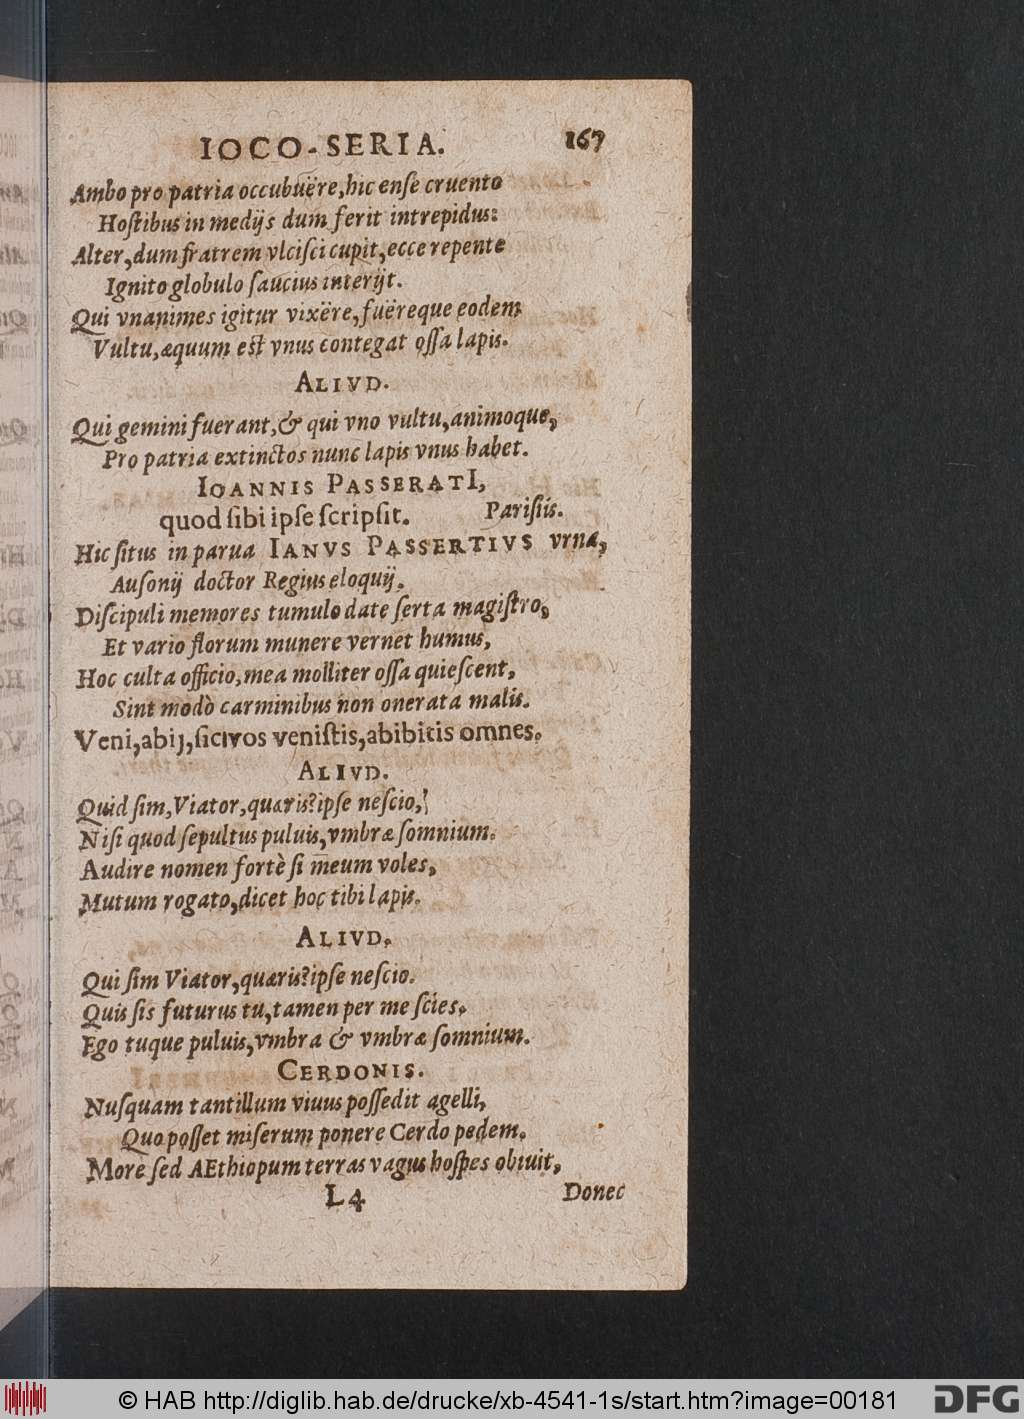 IOCO-SERIA. 167
Ambo pro patria occubuëre, hic enſe cruento
Hoſtibus in medijs dum ferit intrepidus:
Alter, dum fratrem vlciſci cupit, ecce repente
Ignito globulo ſaucius interijt.
Qui vnanimes igitur vixëre, fuëreque eodem
Vultu, æquum eſt vnus contegat oſſa lapis.
ALIVD.
Qui gemini fuerant, & qui vno vultu, animoque,
Pro patria extinctos nunc lapis vnus habet.
IOANNIS PASSERATI,
quod ſibi ipſe ſcripſit. Pariſiis.
Hic ſitus in parua IANVS PASSERTIVS vrna,
Auſonij doctor Regius eloquij.
Diſcipuli memores tumulo date ſerta magiſtro,
Et vario florum munere vernet humus,
Hoc culta officio, mea molliter oſſa quieſcent,
Sint modò carminibus non onerata malis.
Veni, abij, ſic vos veniſtis, abibitis omnes.
ALIVD.
Quid ſim, Viator, quæris? ipſe neſcio,
Niſi quod ſepultus puluis, vmbræ ſomnium.
Audire nomen fortè ſi meum voles,
Mutum rogato, dicet hoc tibi lapis.
ALIVD.
Qui ſim Viator, quæris? ipſe neſcio.
Quis ſis futurus tu, tamen per me ſcies.
Ego tuque puluis, vmbra & vmbræ ſomnium.
CERDONIS.
Nuſquam tantillum viuus poſſedit agelli,
Quo poſſet miſerum ponere Cerdo pedem.
More ſed AEthiopum terras vagus hoſpes obiuit,
L4 Donec
© HAB http://diglib.hab.de/drucke/xb-4541-1s/start.htm?image=00181 DFG